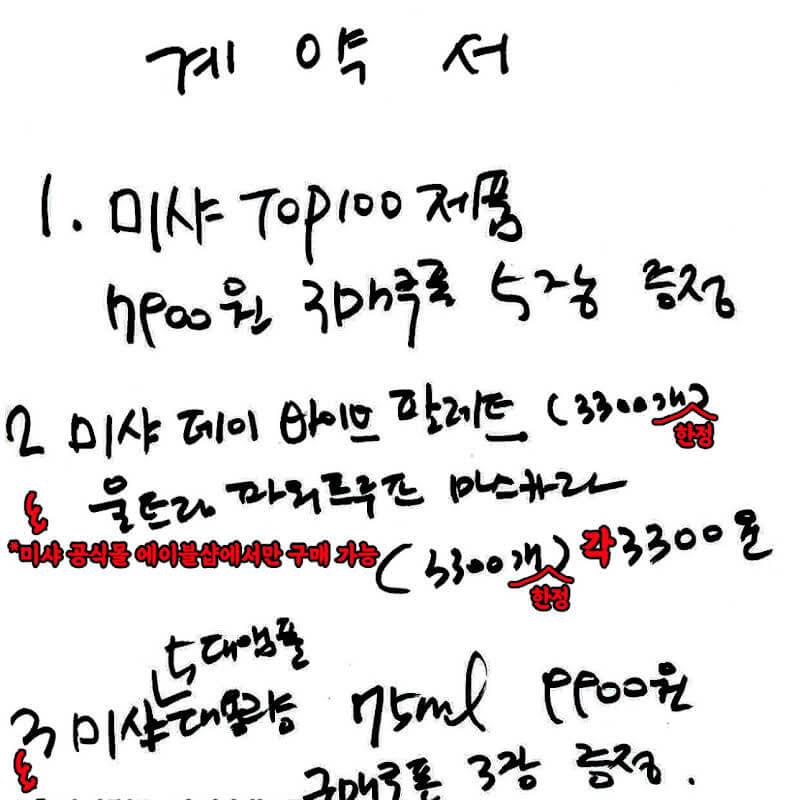 계약서
1. 미샤 TOP100 제품
7900원 구매쿠폰 5장 증정
2 미샤 데이 바이브 팔레트 (3300개)
한정
울트라 파워프루프 마스카라
*미샤 공식몰 에이블샵에서만 구매 가능
(3300개) 각 3300원
한정
5대앰플
3 미샤 대용량 75ml 9900원
구매쿠폰 3장 증정.